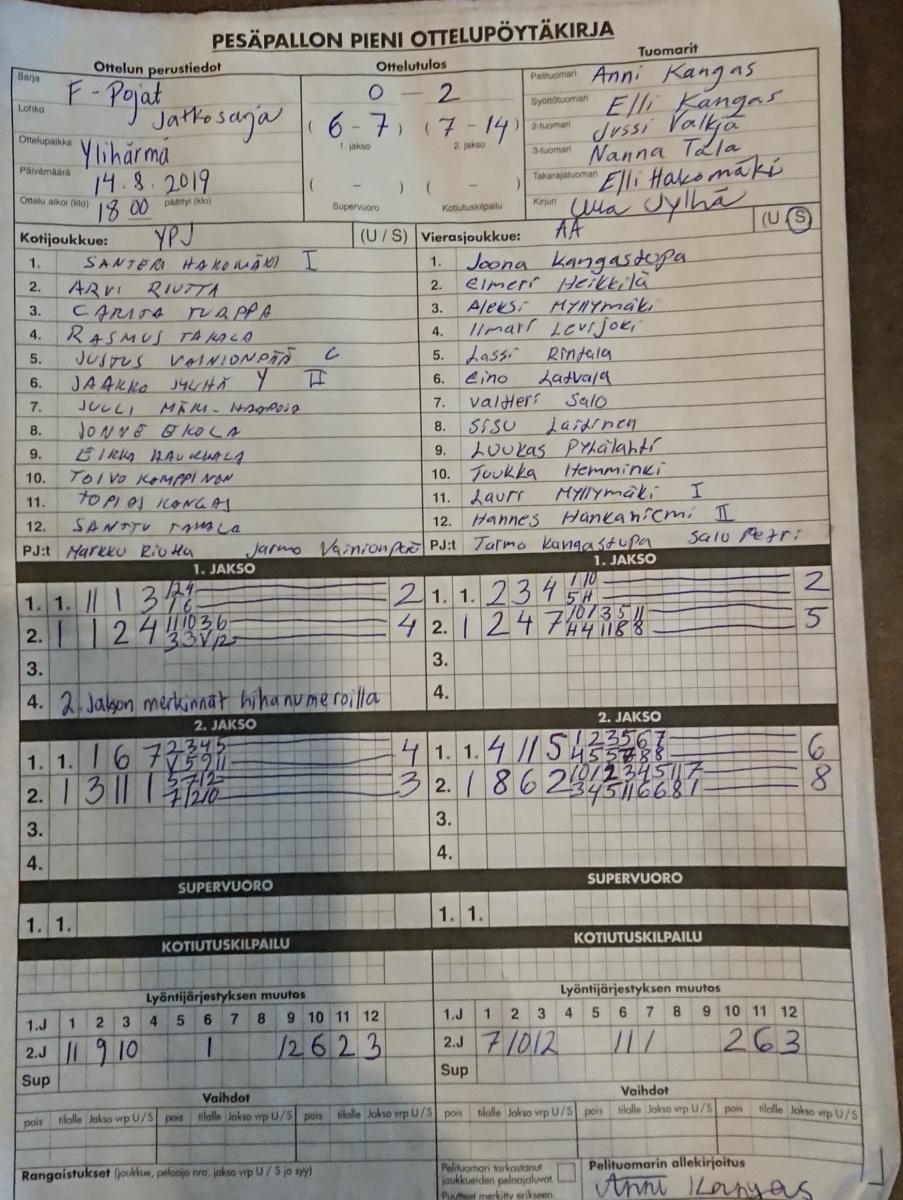 PESÄPALLON PIENI OTTELUPÖYTÄKIRJA
Ottelun perustiedot
Sarja F-Pojat
Lohko Jatkosarja
Ottelupaikka Ylihärmä
Päivämäärä 14.8.2019
Ottelu alkoi (klo) 18 00 päättyi (klo)
Ottelutulos
0 - 2
(6-7) (7-14)
1. jakso 2. jakso
( - ) ( - )
Supervuoro Kotiutuskilpailu
Tuomarit
Pelituomari Anni Kangas
Syöttötuomari Elli Kangas
2-tuomari Jussi Valkja
3-tuomari Nanna Tala
Takarajatuomari Elli Hakomäki
Kirjuri Ulla Jylhä
Kotijoukkue: YPJ (U / S)
1. SANTERI HAKOMÄKI I
2. ARVI RIUTTA
3. CARITA TURPPA
4. RASMUS TAKALA
5. JUSTUS VAINIONPÄÄ C
6. JAAKKO JYLHÄ Y II
7. JULLI MÄKI-HAAPOJA
8. JONNE EKOLA
9. EIKKA HAUKKALA
10. TOIVO KOMPPINEN
11. TOPIAS KANGAS
12. SANTTU TAKALA
PJ:t Markku Riutta Jarmo Vainionpää
Vierasjoukkue: AA (U / S)
1. Joona Kangastupa
2. Elmeri Heikkilä
3. Aleksi Myllymäki
4. Ilmari Levijoki
5. Lassi Rintala
6. Eino Latvala
7. Valtteri Salo
8. Sisu Laitinen
9. Luukas Pyhälahti
10. Tuukka Hemminki
11. Lauri Myllymäki I
12. Hannes Hankaniemi II
PJ:t Tarmo Kangastupa Salo Petri
1. JAKSO
1. 1. 11 1 3 2
2. 1 1 2 4 4
3.
4. 2. Jakson merkinnät hihanumeroilla
1. JAKSO
1. 1. 2 3 4 2
2. 1 2 4 7 5
3.
4.
2. JAKSO
1. 1. 1 6 7 2345 4
2. 1 3 11 1 3
3.
4.
2. JAKSO
1. 1. 4 11 5 123567 6
2. 1 8 6 2 8
3.
4.
SUPERVUORO
1. 1.
SUPERVUORO
1. 1.
KOTIUTUSKILPAILU
KOTIUTUSKILPAILU
Lyöntijärjestyksen muutos
1.J 1 2 3 4 5 6 7 8 9 10 11 12
2.J 11 9 10 1 12 6 2 3
Sup
Lyöntijärjestyksen muutos
1.J 1 2 3 4 5 6 7 8 9 10 11 12
2.J 7 10 12 11 1 2 6 3
Sup
Vaihdot
pois tilalle Jakso vrp U/S pois tilalle Jakso vrp U/S pois tilalle Jakso vrp U/S
Vaihdot
pois tilalle Jakso vrp U/S pois tilalle Jakso vrp U/S pois tilalle Jakso vrp U/S
Rangaistukset (joukkue, pelaaja nro, jakso vrp U / S ja syy)
Pelituomari tarkastanut
joukkueiden pelaajaluvat
Puutteet merkitty erikseen
Pelituomarin allekirjoitus
Anni Kangas